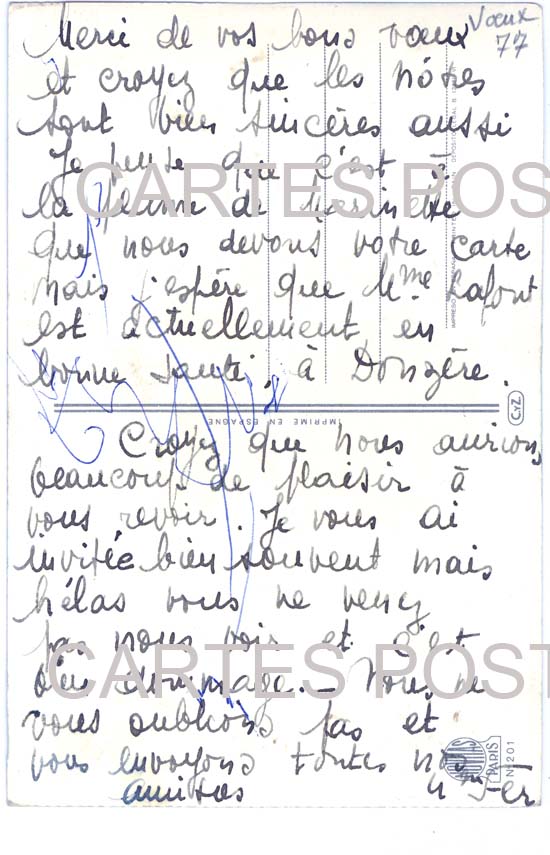 Voeux
77
Merci de vos bons voeux
et croyez que les nôtres
sont bien sincères aussi
Je pense que c'est à
la plume de
que nous devons votre carte
mais j'espère que Mme Lafont
est actuellement en
bonne santé, à Donzère.
IMPRIME EN ESPAGNE
CyZ
Croyez que nous aurions
beaucoup de plaisir à
vous revoir. Je vous ai
invitée bien souvent mais
hélas vous ne venez
pas nous voir et c'est
bien dommage. _ Nous ne
vous oublions pas et
vous envoyons toutes nos
amitiés
PARIS
N° 201
CARTES POST
CARTES POST